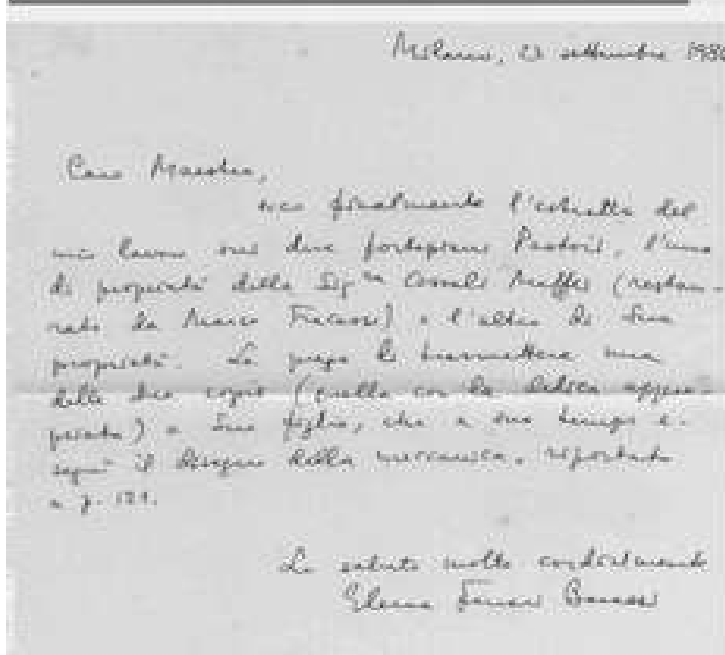 Milano, settembre
Caro Maestro,
ecco finalmente l'estratto del
mio lavoro sui due fortepiani l'uno
di proprietà della Sig.ra Maffei (restau-
rato da Marco e l'altro di Sua
proprietà. La prego di trasmettere una
delle due copie (quella con la dedica appro-
priata) a Suo figlio, che a suo tempo e-
seguì il disegno della meccanica, riportato
a p. 121.
La saluto molto cordialmente
Elena Ferrari